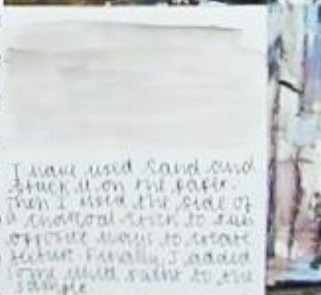 I have used sand and
stuck it on the paper.
Then I used the side of
a charcoal stick to rub
opposite ways to create
Finally I added
some paint to the
sample